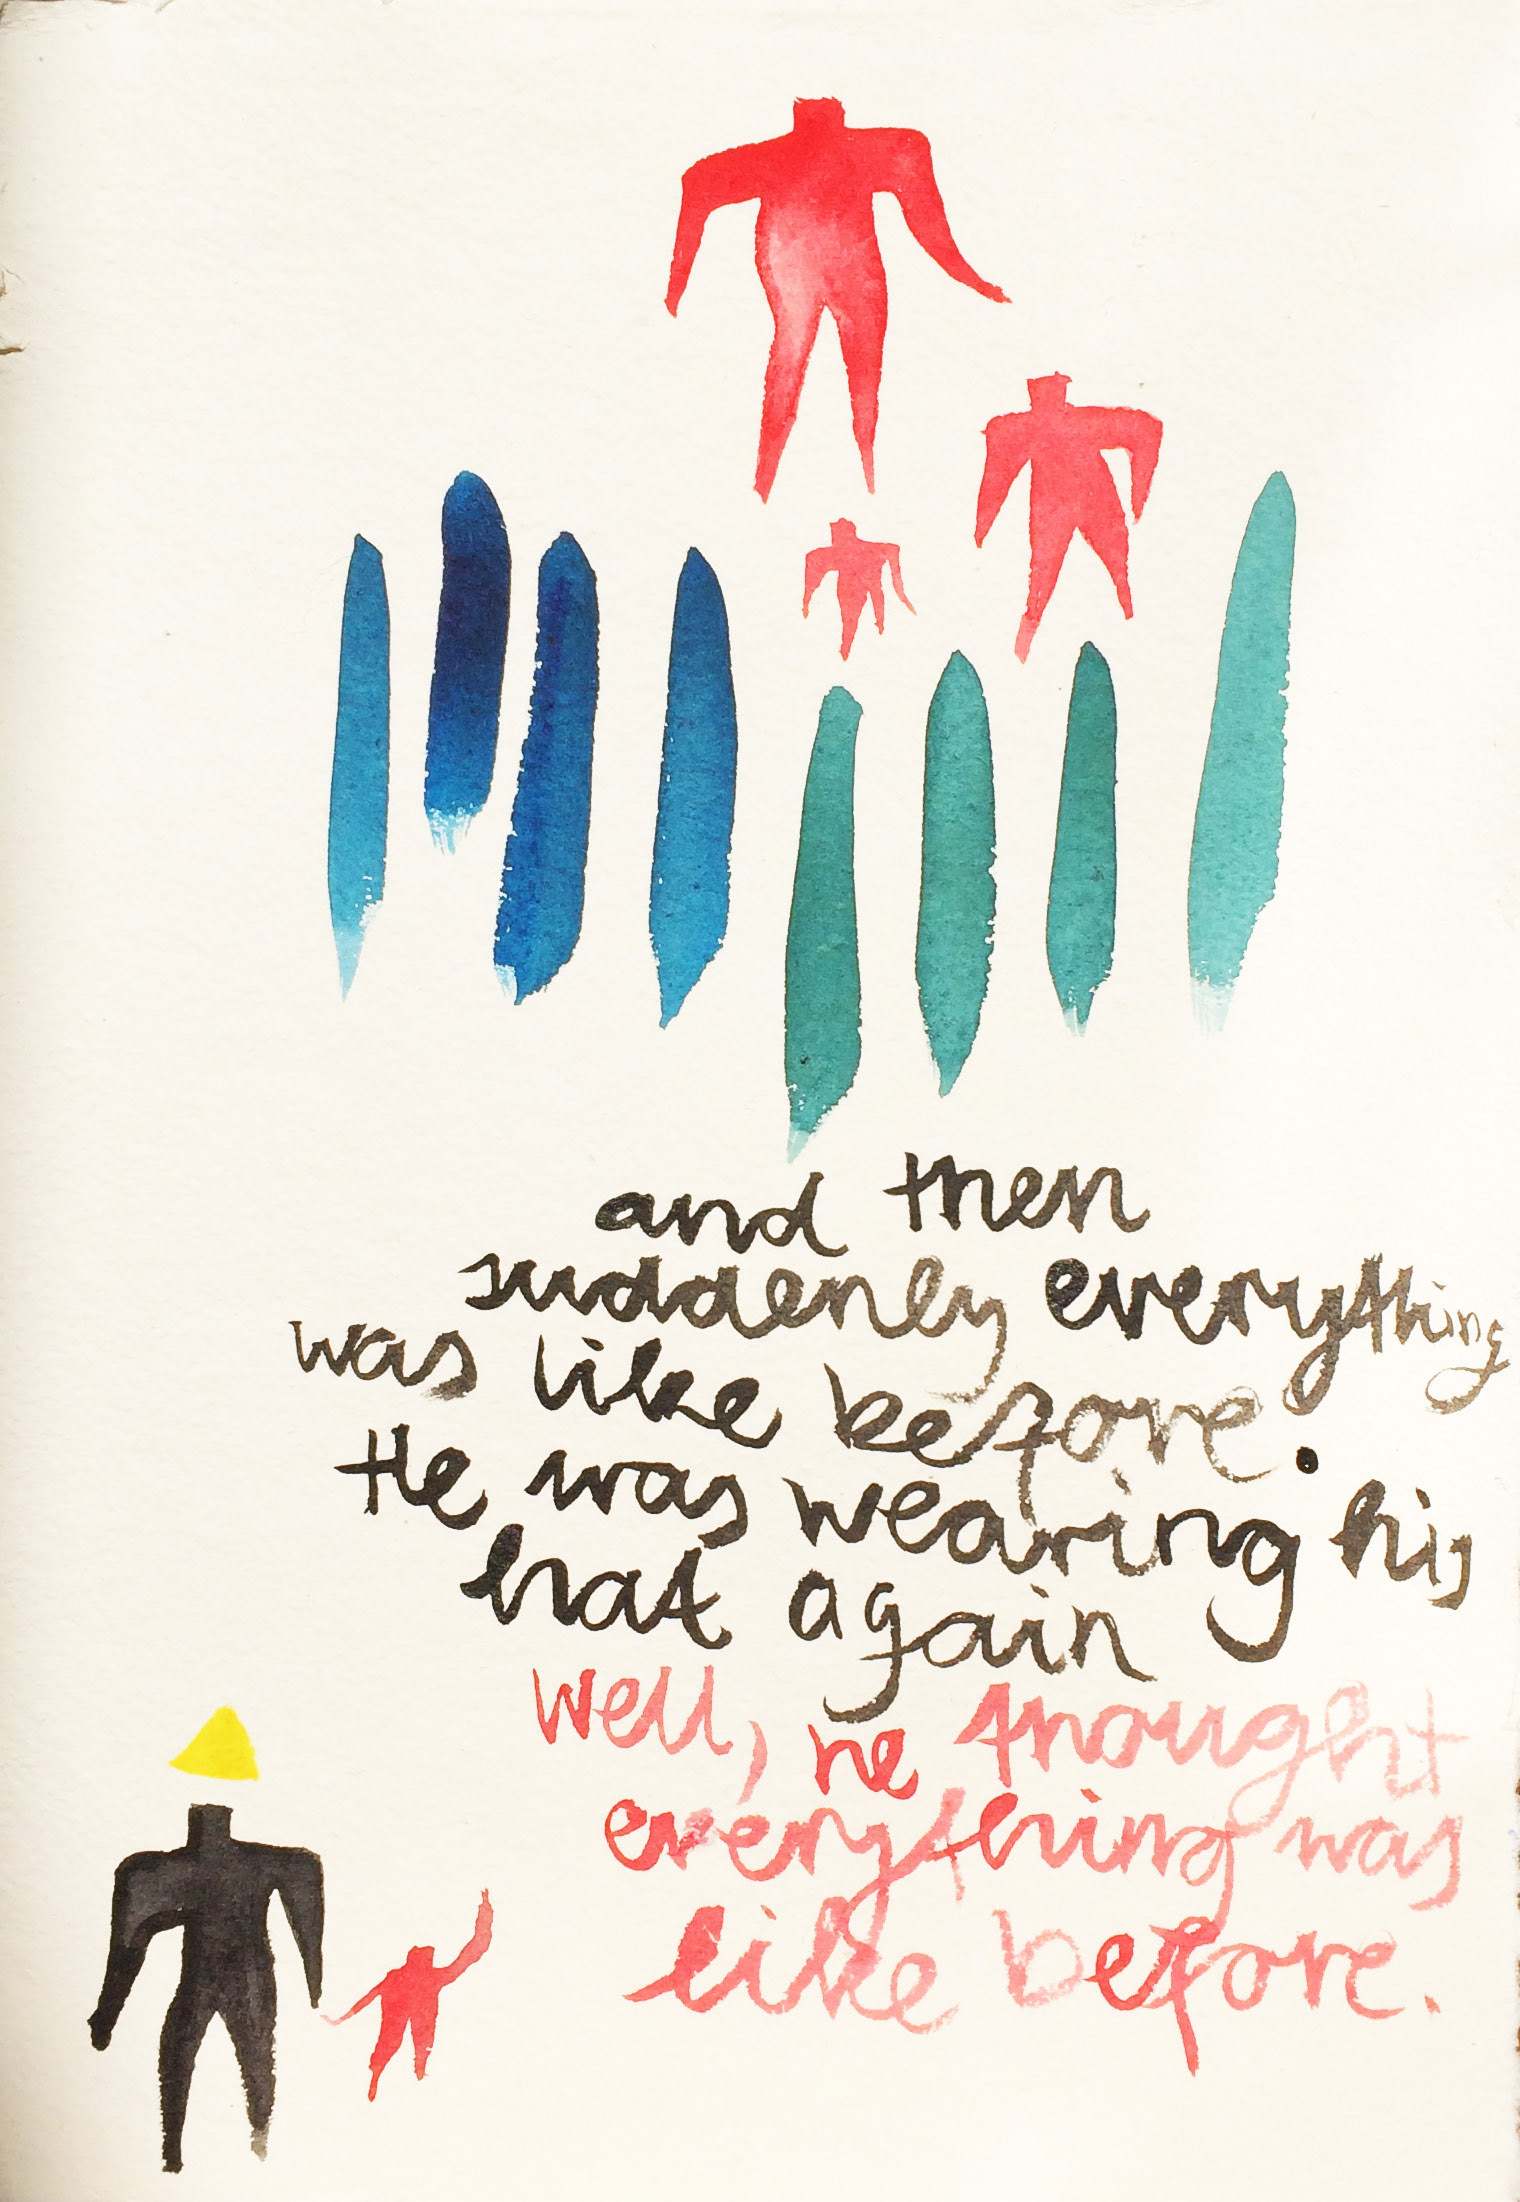 and then
suddenly everything
was like before.
He was wearing his
hat again
well, he thought
everything was
like before.